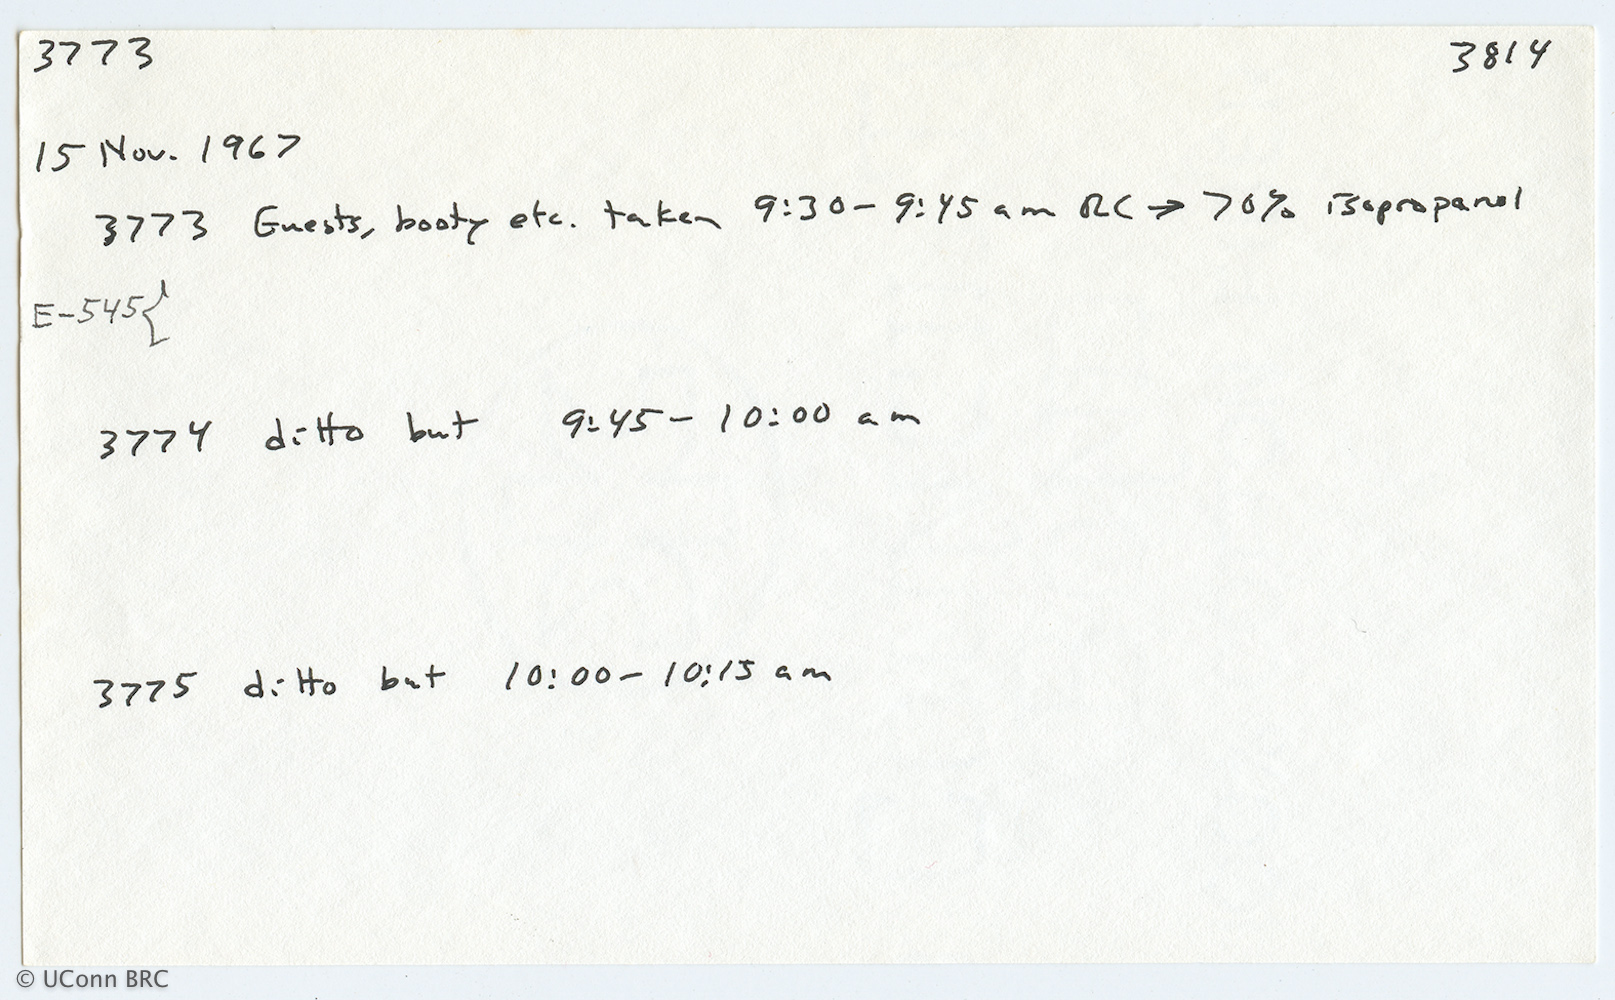 3773 3814
15 Nov. 1967
3773 Guests, booty etc. taken 9:30-9:45 am RC → 70% isopropanol
E-545{
3774 ditto but 9:45-10:00 am
3775 ditto but 10:00-10:15 am
© UConn BRC